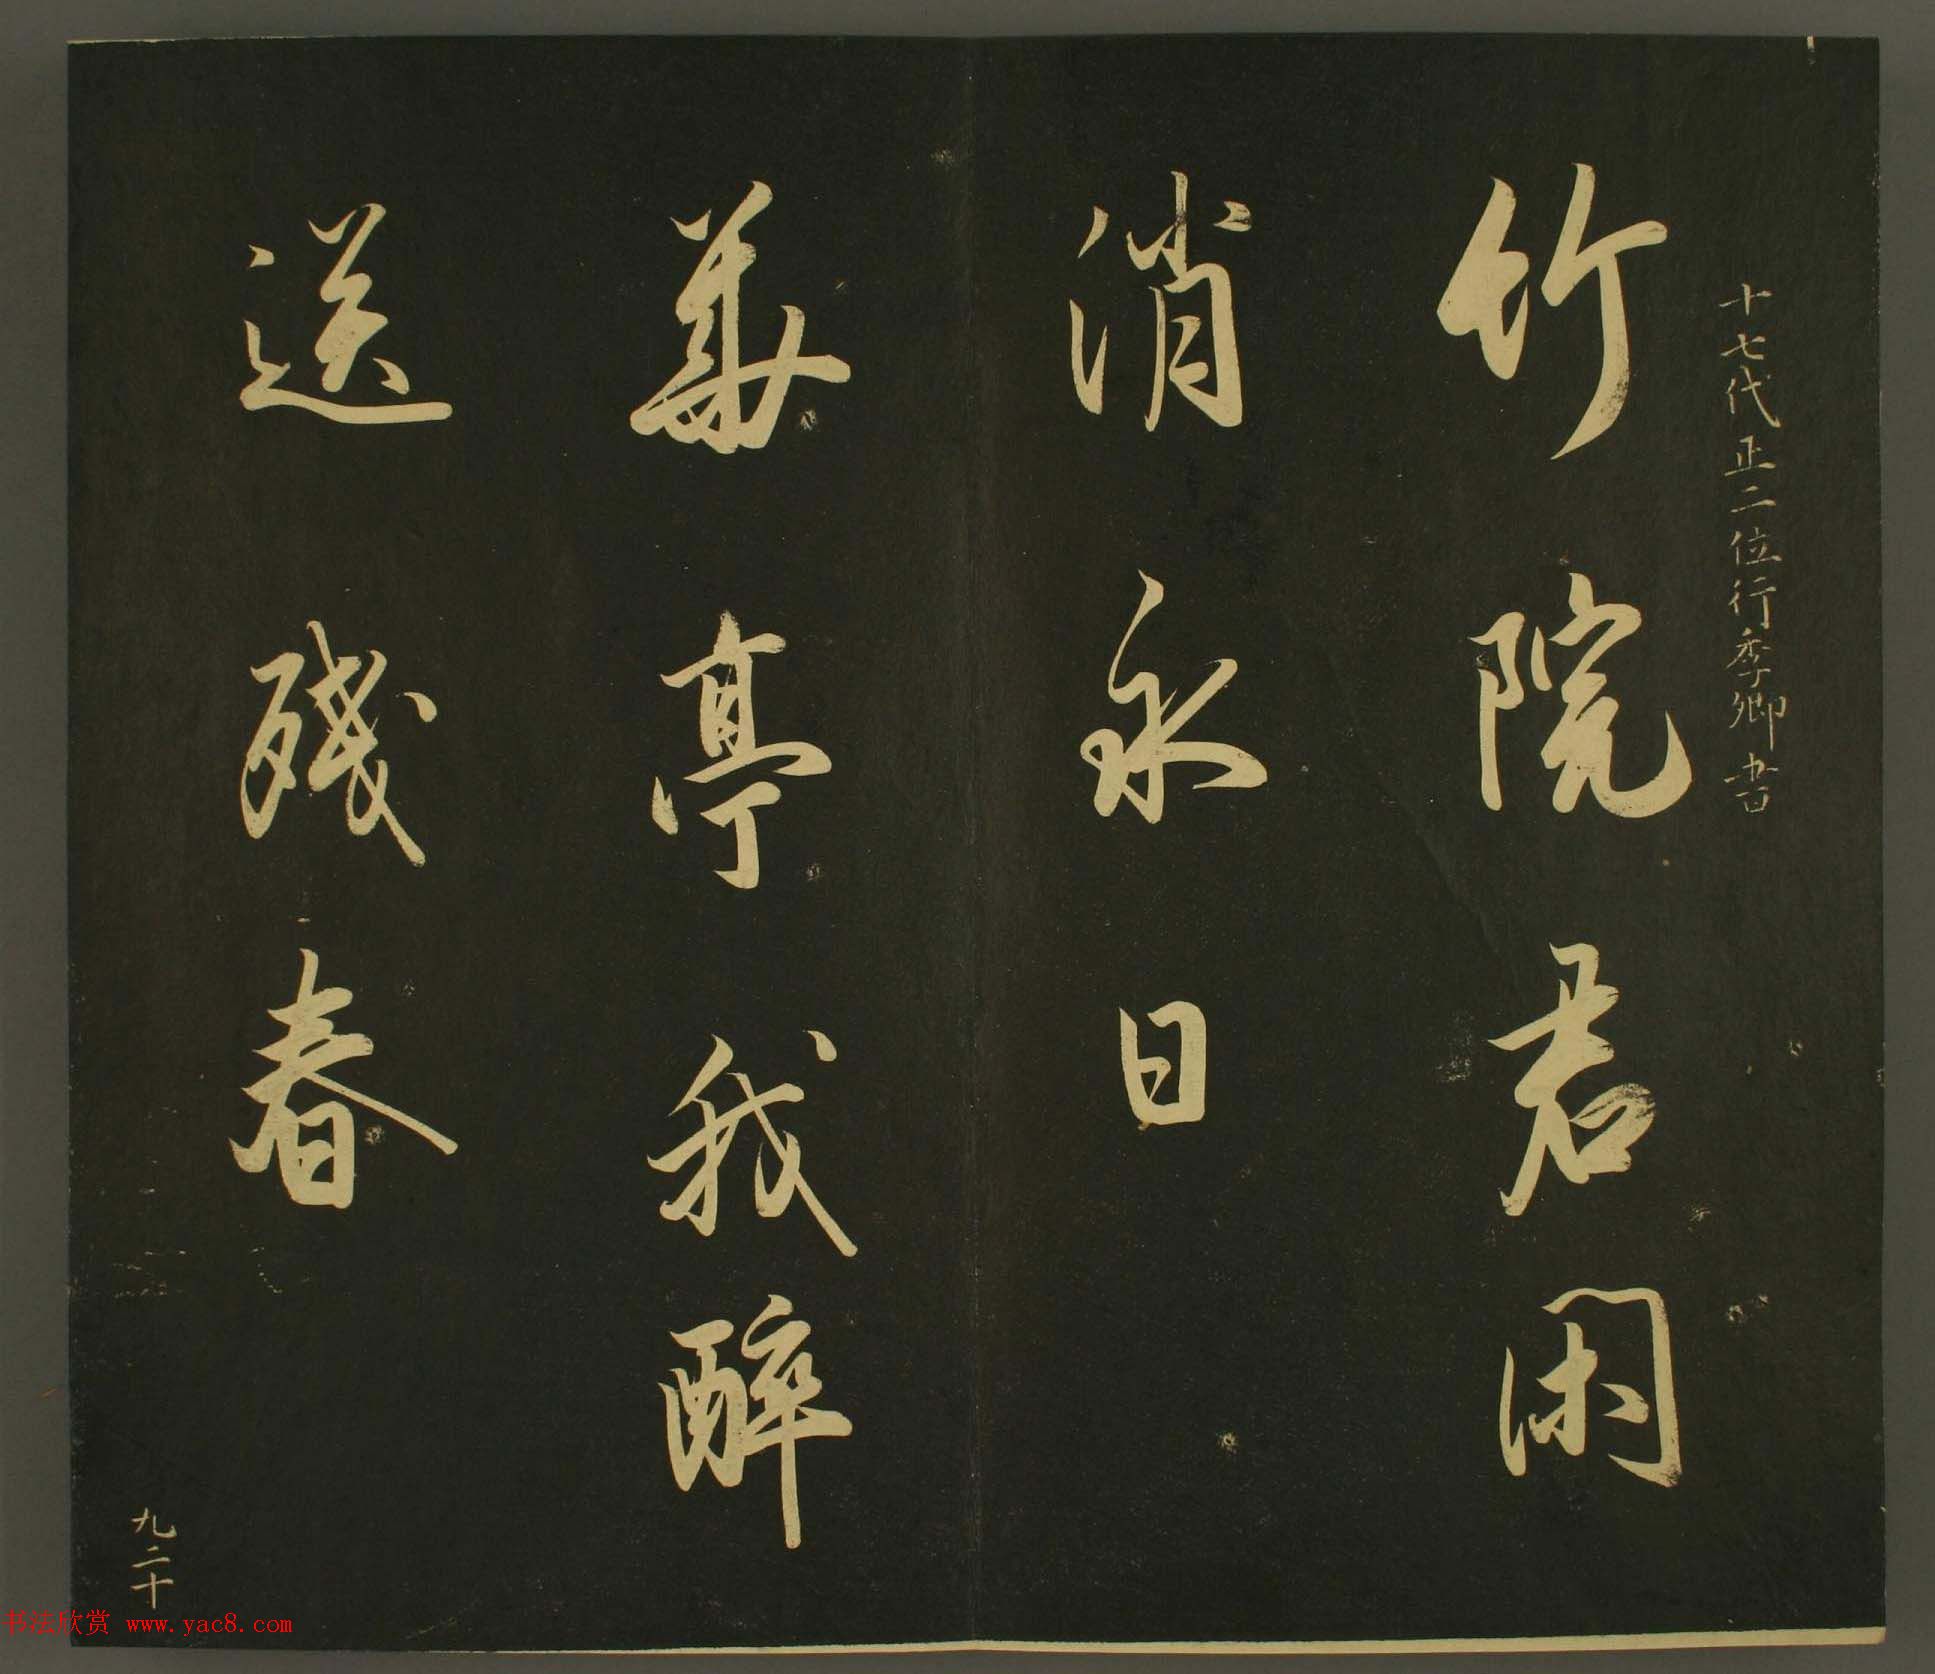 十七代正二位行季卿书
竹院君闲
消永日
華亭我醉
送残春
九二十
书法欣赏 www.yac8.com